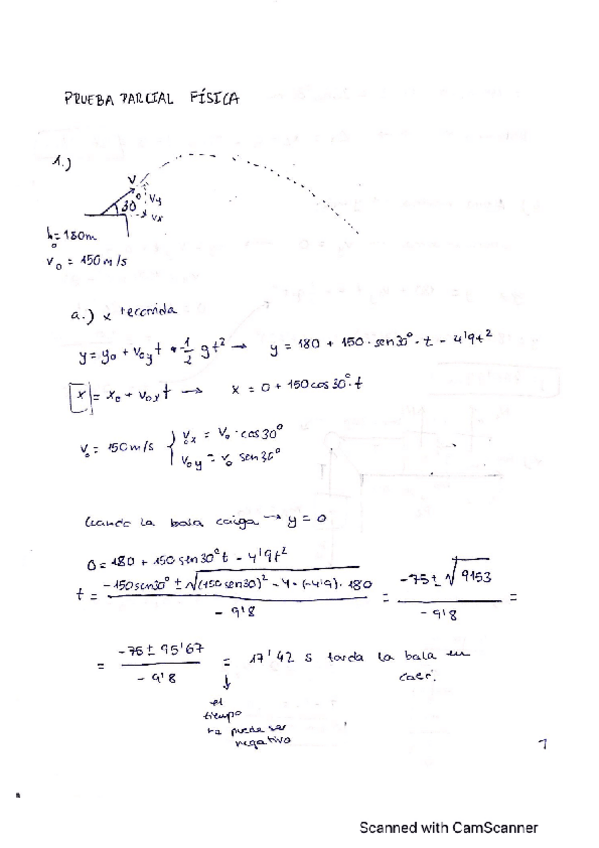 PRUEBA PARCIAL FÍSICA
1.)
V
30° Vy
Vx
h₀ = 180m
v₀ = 150 m/s
a.) x recorrida
y = y₀ + V₀yt + 1/2 gt² → y = 180 + 150 · sen30° · t - 4'9t²
x = x₀ + v₀xt → x = 0 + 150 cos 30° · t
V₀ = 150 m/s { V₀x = V₀ · cos 30°
V₀y = V₀ sen 30°
Cuando la bala caiga → y = 0
0 = 180 + 150 sen30° t - 4'9t²
t = (-150sen30° ± √((150 sen30)² - 4 · (-4'9) · 180)) / -9'8 = (-75 ± √9153) / -9'8 =
= (-75 ± 95'67) / -9'8 = 17'42 s tarda la bala en
caer.
↓
el
tiempo
no puede ser
negativo
1
Scanned with CamScanner